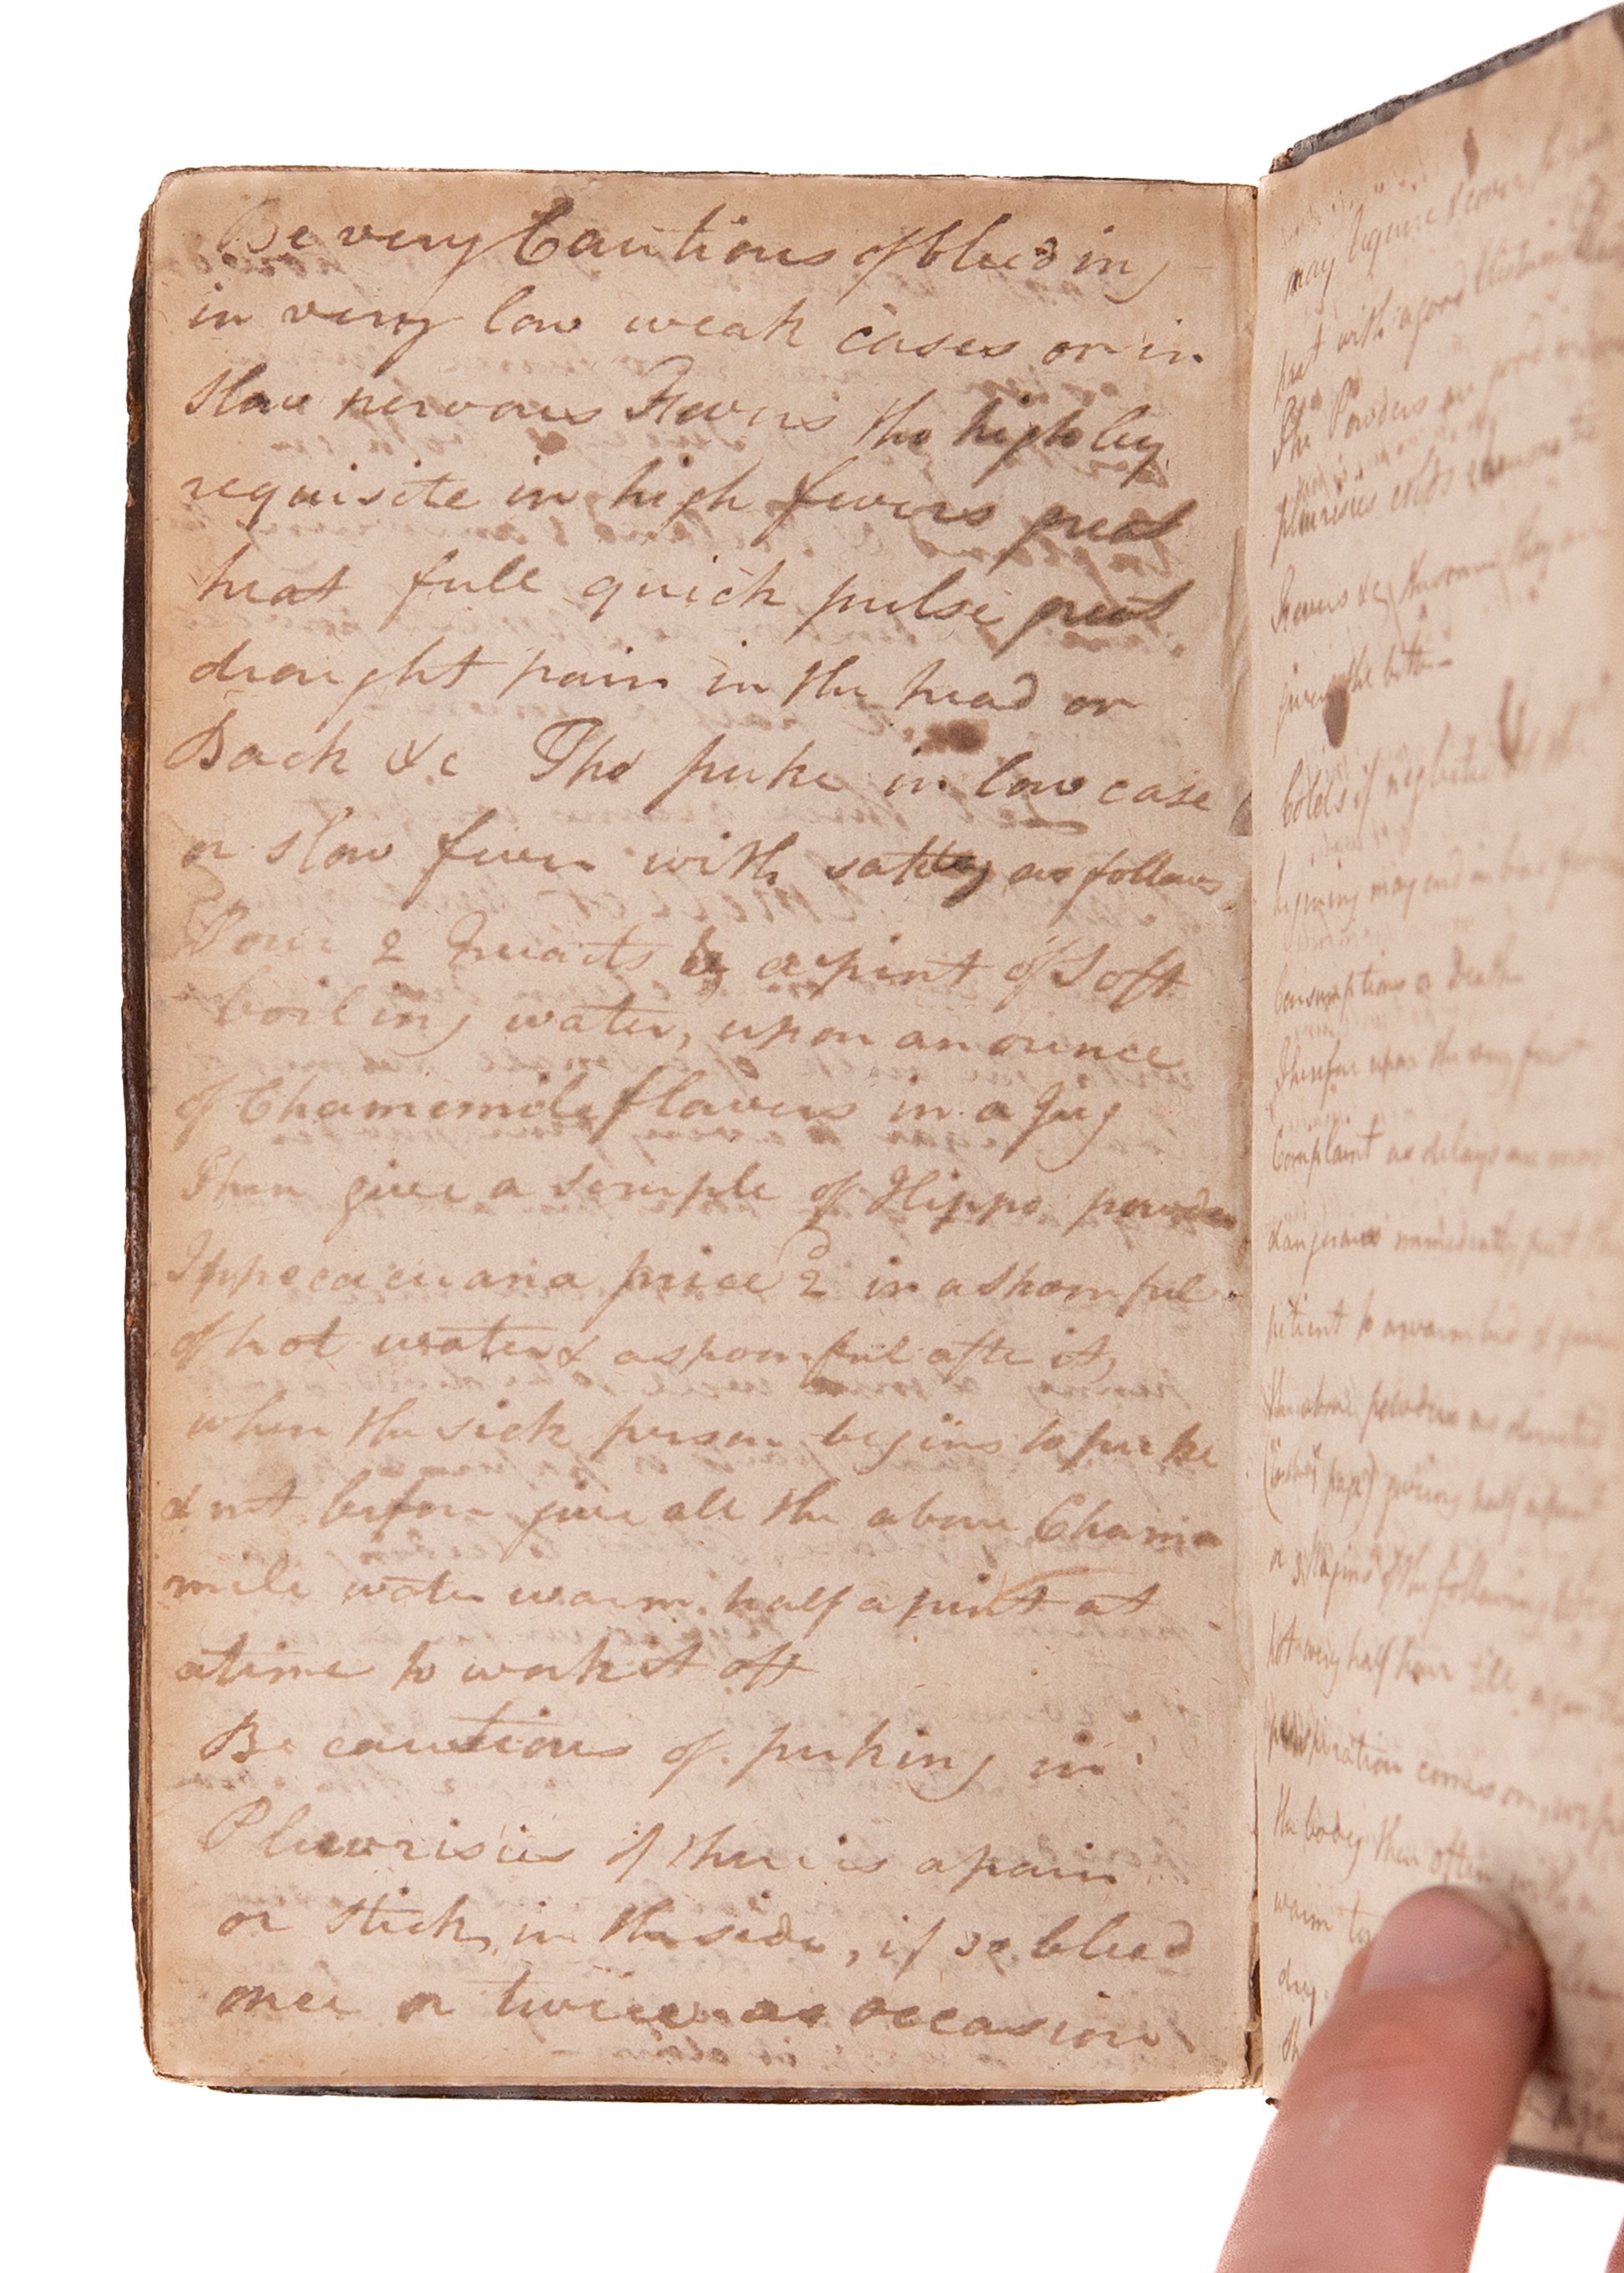 Be very Cautious of bleeding
in very low weak cases or in
slow nervous Fevers tho highley
requisite in high fevers great
heat full quick pulse great
drought pain in the head or
Back &c The puke in low case
or slow fever with safety as follows
Pour 2 Quarts & a pint of Soft
boiling water, upon an ounce
of Chamomile flowers in a Jug
Then give a scruple of Hippo powder
Ippecacuana price 2 in a spoonful
of hot water & a spoonful after it,
when the sick person begins to puke
& not before give all the above Chamo
mile water warm. half a pint at
a time to work it off
Be cautious of puking in
Pleurisies if there is a pain
or stich, in the side, if so bleed
once or twice as occasion
may require
with a good
The Powders are good in
pleurisies colds
Fevers &c
given the
Colds if neglected at the
begining may end in bad
Consumptions or Death
Therefore upon the very first
Complaint as delays are
dangerous immediately put the
patient to a warm bed & give
the above powders as directed
page) giving half a pint
of the following
hot every half hour till
perspiration comes on,
the body then often with a
warm
dry